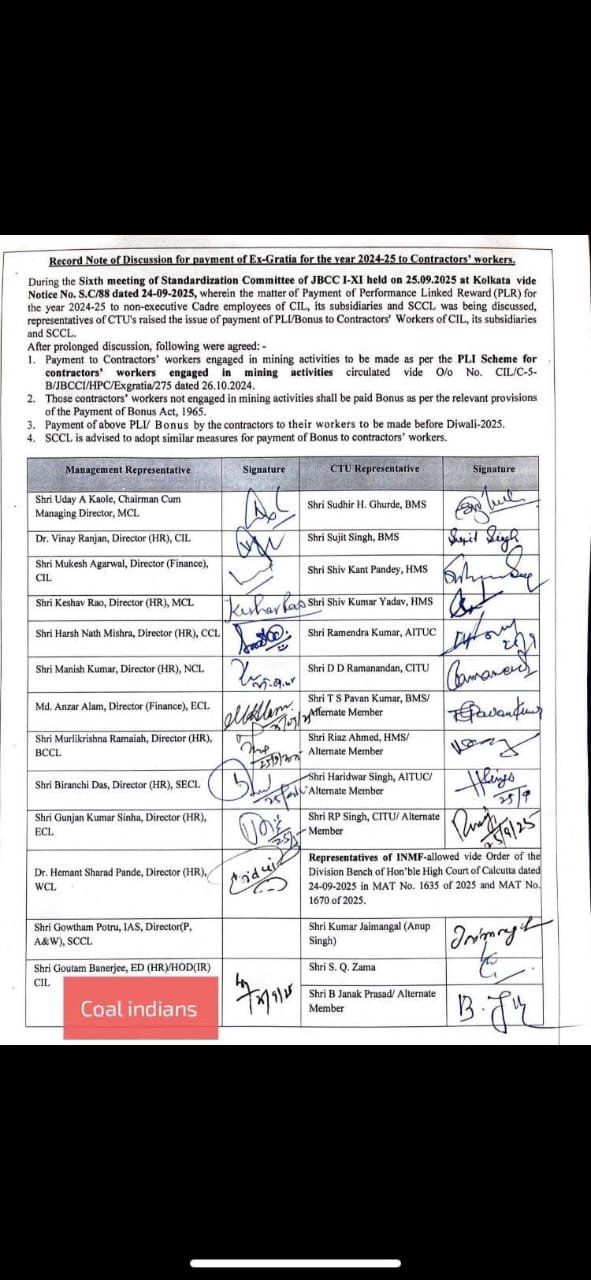 Record Note of Discussion for payment of Ex-Gratia for the year 2024-25 to Contractors' workers.
During the Sixth meeting of Standardization Committee of JBCC I-XI held on 25.09.2025 at Kolkata vide
Notice No. S.C/88 dated 24-09-2025, wherein the matter of Payment of Performance Linked Reward (PLR) for
the year 2024-25 to non-executive Cadre employees of CIL, its subsidiaries and SCCL was being discussed,
representatives of CTU's raised the issue of payment of PLI/Bonus to Contractors' Workers of CIL, its subsidiaries
and SCCL.
After prolonged discussion, following were agreed: -
1. Payment to Contractors' workers engaged in mining activities to be made as per the PLI Scheme for
contractors' workers engaged in mining activities circulated vide O/o No. CIL/C-5-
B/JBCCI/HPC/Exgratia/275 dated 26.10.2024.
2. Those contractors' workers not engaged in mining activities shall be paid Bonus as per the relevant provisions
of the Payment of Bonus Act, 1965.
3. Payment of above PLI/ Bonus by the contractors to their workers to be made before Diwali-2025.
4. SCCL is advised to adopt similar measures for payment of Bonus to contractors' workers.
Management Representative Signature CTU Representative Signature
Shri Uday A Kaole, Chairman Cum
Managing Director, MCL
Shri Sudhir H. Ghurde, BMS
Dr. Vinay Ranjan, Director (HR), CIL
Shri Sujit Singh, BMS
Sujit Singh
Shri Mukesh Agarwal, Director (Finance),
CIL
Shri Shiv Kant Pandey, HMS
Shri Keshav Rao, Director (HR), MCL
Keshav Rao
Shri Shiv Kumar Yadav, HMS
Shri Harsh Nath Mishra, Director (HR), CCL
Shri Ramendra Kumar, AITUC
Shri Manish Kumar, Director (HR), NCL
Shri D D Ramanandan, CITU
Md. Anzar Alam, Director (Finance), ECL
Shri T S Pavan Kumar, BMS/
Alternate Member
Shri Murlikrishna Ramaiah, Director (HR),
BCCL
Shri Riaz Ahmed, HMS/
Alternate Member
Shri Biranchi Das, Director (HR), SECL
Shri Haridwar Singh, AITUC/
Alternate Member
25/9
Shri Gunjan Kumar Sinha, Director (HR),
ECL
Shri RP Singh, CITU/ Alternate
Member
25/9/25
Dr. Hemant Sharad Pande, Director (HR),
WCL
Representatives of INMF-allowed vide Order of the
Division Bench of Hon'ble High Court of Calcutta dated
24-09-2025 in MAT No. 1635 of 2025 and MAT No.
1670 of 2025.
Shri Gowtham Potru, IAS, Director(P,
A&W), SCCL
Shri Kumar Jaimangal (Anup
Singh)
Shri Goutam Banerjee, ED (HR)/HOD(IR)
CIL
Shri S. Q. Zama
Shri B Janak Prasad/ Alternate
Member
Coal indians